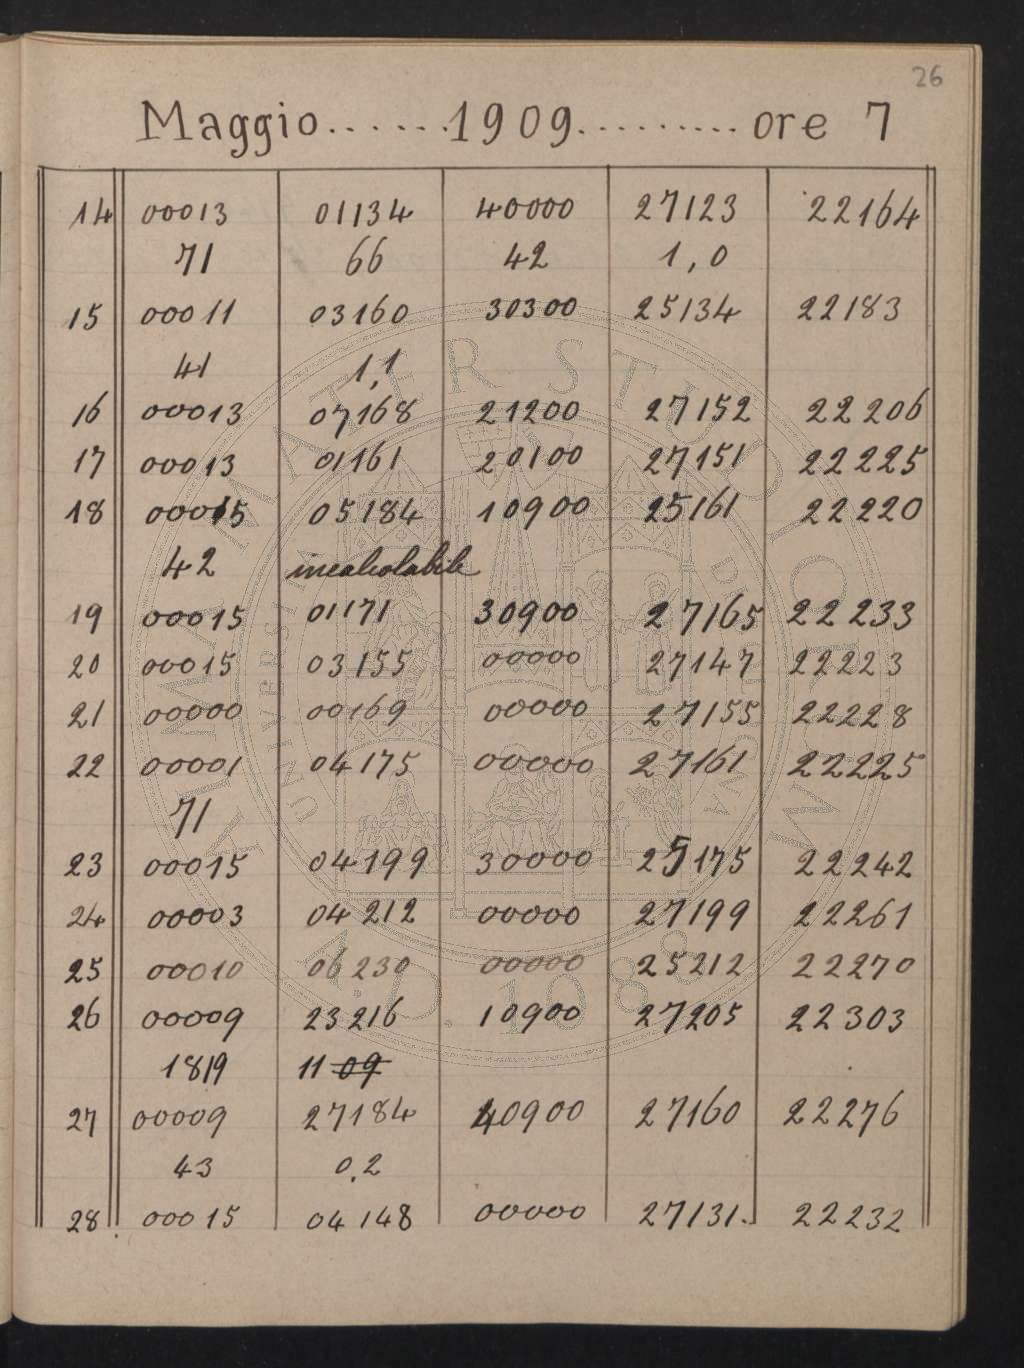 26
Maggio.......1909..........ore 7
14 00013 01134 40000 27123 22164
71 66 42 1,0
15 00011 03160 30300 25134 22183
41 1,1
16 00013 07168 21200 27152 22206
17 00013 01161 20100 27151 22225
18 00015 05184 10900 25161 22220
42 incalcolabile
19 00015 01171 30900 27165 22233
20 00015 03155 00000 27147 22223
21 00000 00169 00000 27155 22228
22 00001 04175 00000 27161 22225
71
23 00015 04199 30000 25175 22242
24 00003 04212 00000 27199 22261
25 00010 06230 00000 25212 22270
26 00009 23216 10900 27205 22303
1819 11 09
27 00009 27184 40900 27160 22276
43 0,2
28 00015 04148 00000 27131 22232
ALMA MATER STUDIORUM
A.D. 1088